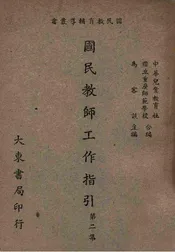 國民教育輔導叢書
中華兒童教育社
國立重慶師範學校 合編
馬客談主編
國民教師工作指引 第二集
大東書局印行